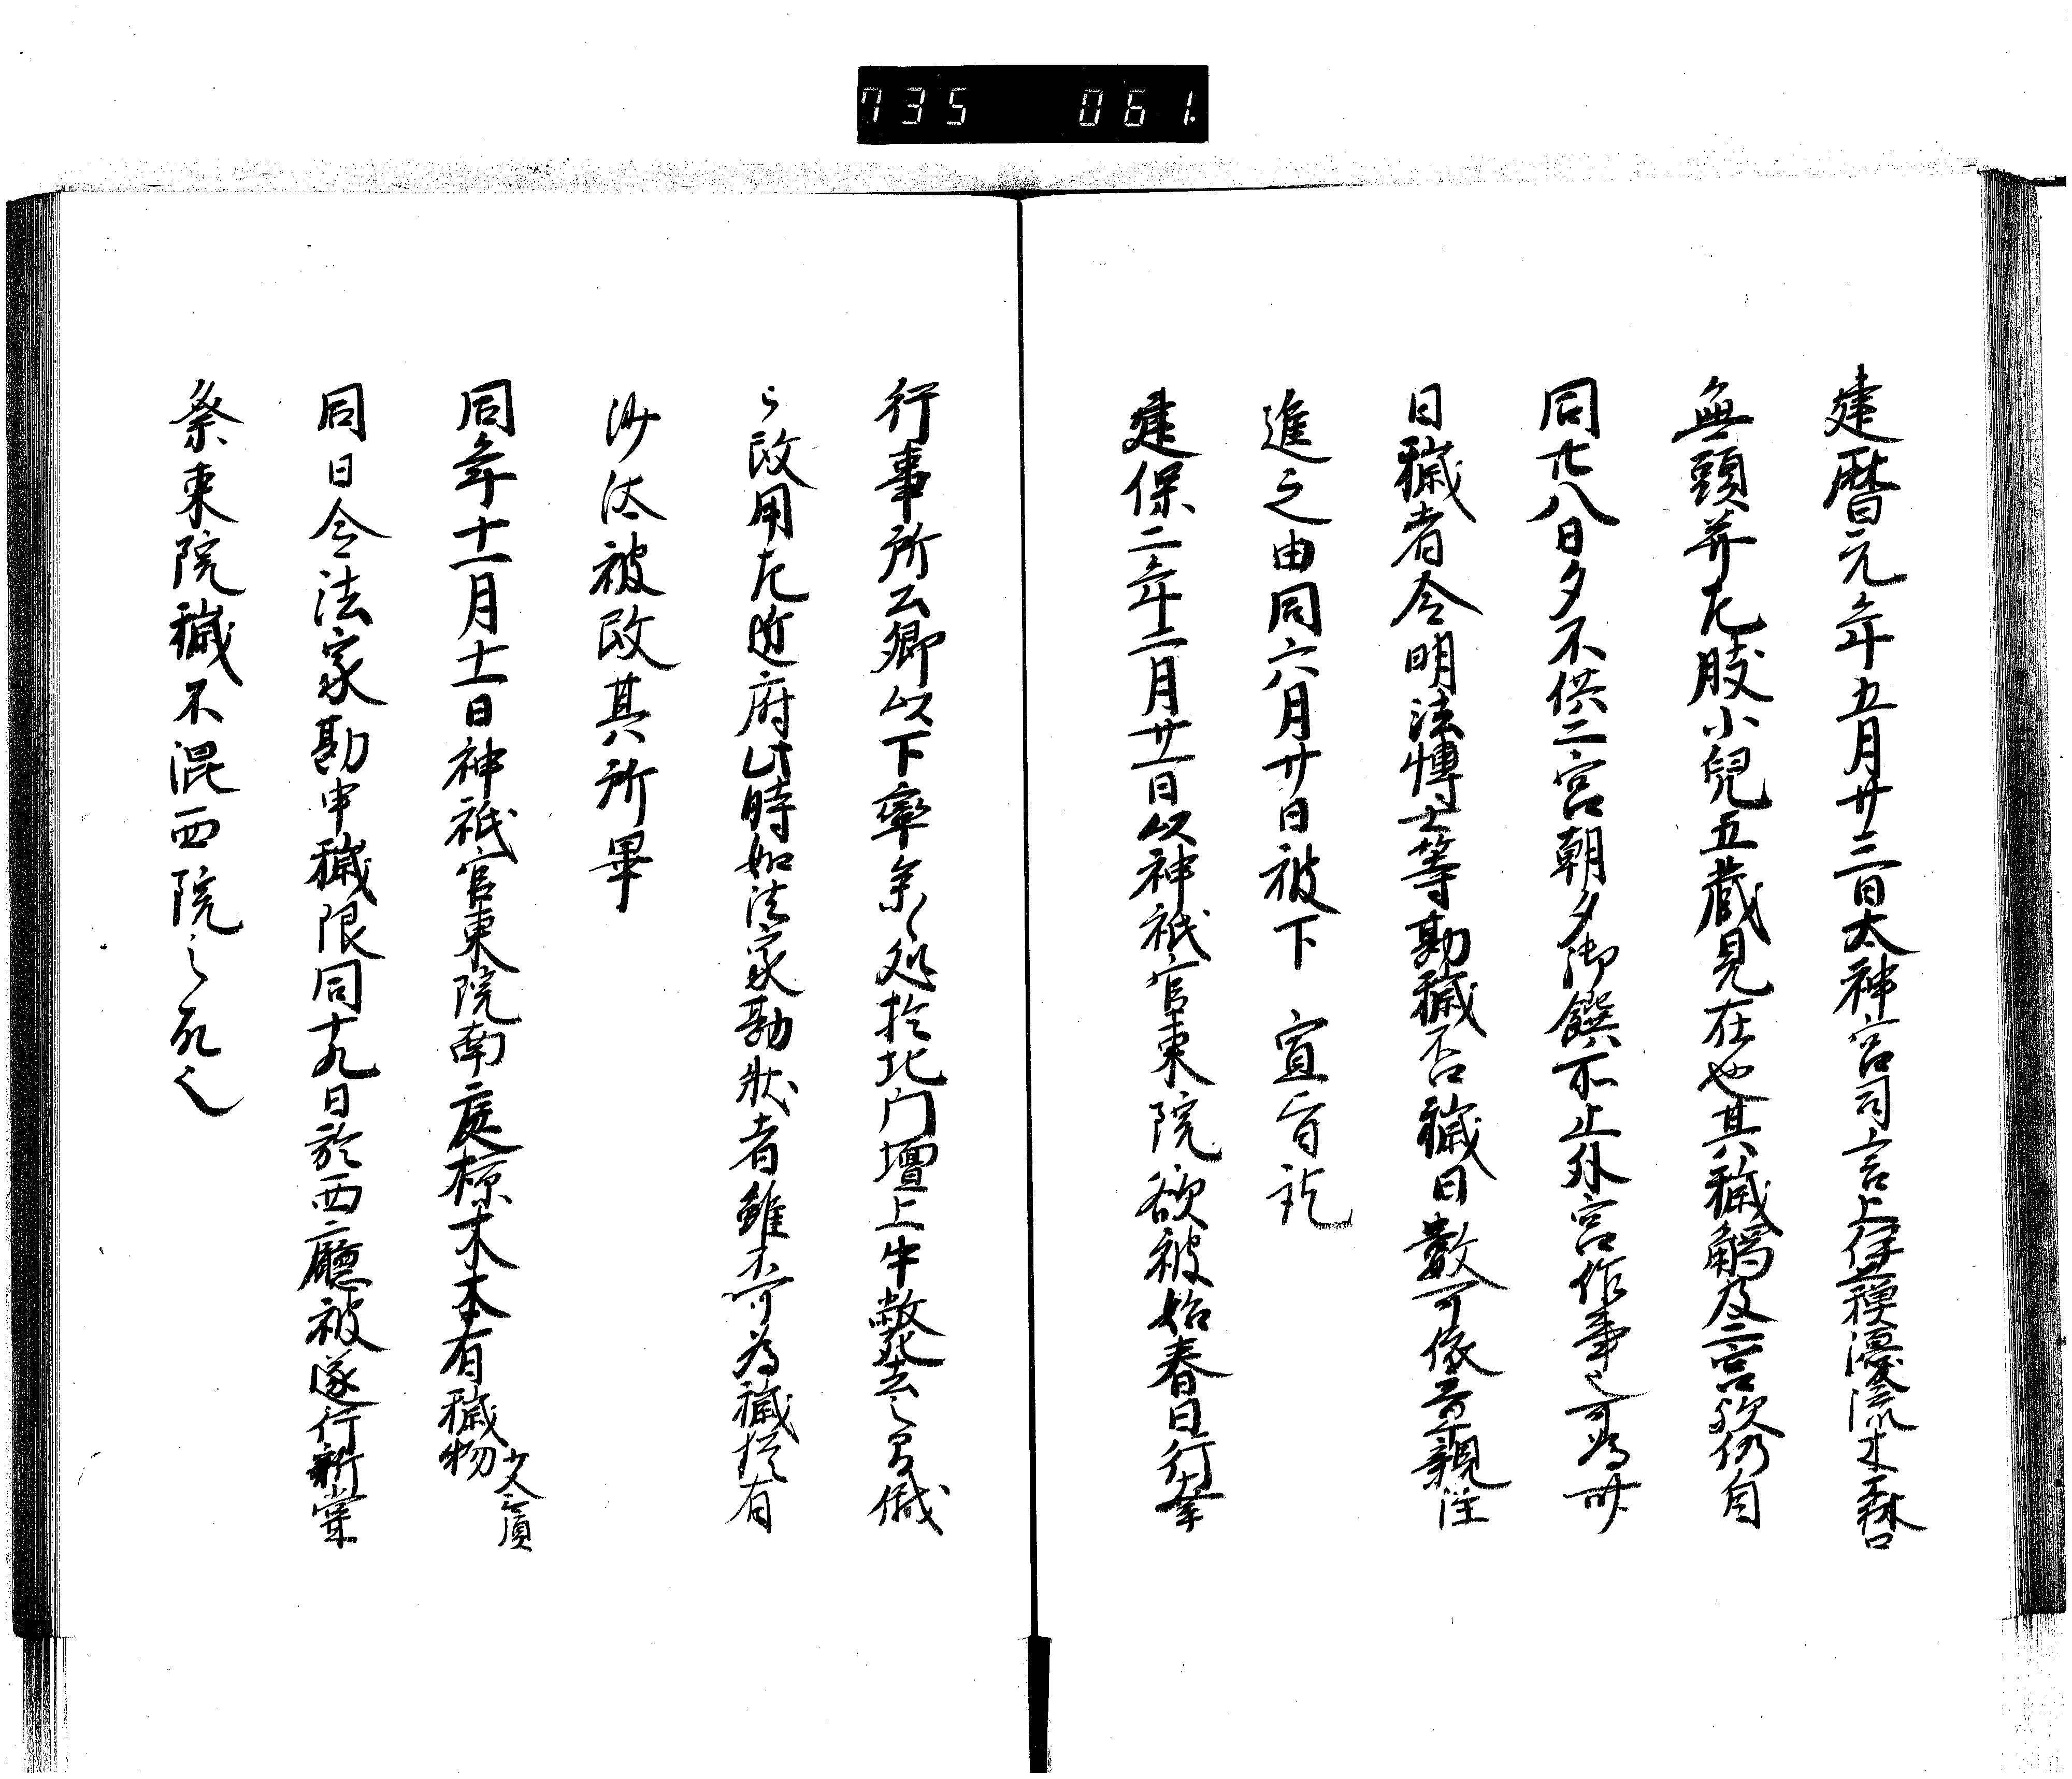 735 061.
建暦元年五月廿三日太神宮司言上伊稉濅流木森
無頭并左肢小兒五蔵見在也其穢觸及二宮欤仍自
同廿八日夕不供二宮朝夕御饌不止外宮作事也可為
日穢者令明法博士等勘穢否穢日數可依章親注
進之由同六月廿日被下 宣旨訖
建保二年二月廿一日以神祇官東院欲被始春日行幸
行事所公卿以下率参処於北門壇上牛斃去了為穢
改用左近府此時如法家勘状者雖不可為穢猶有
沙汰被改其所畢
同年十一月十一日神祇官東院南庭椋木本有穢物
同日令法家勘申穢限同十九日於西廳被遂行新甞
祭東院穢不混西院之故也